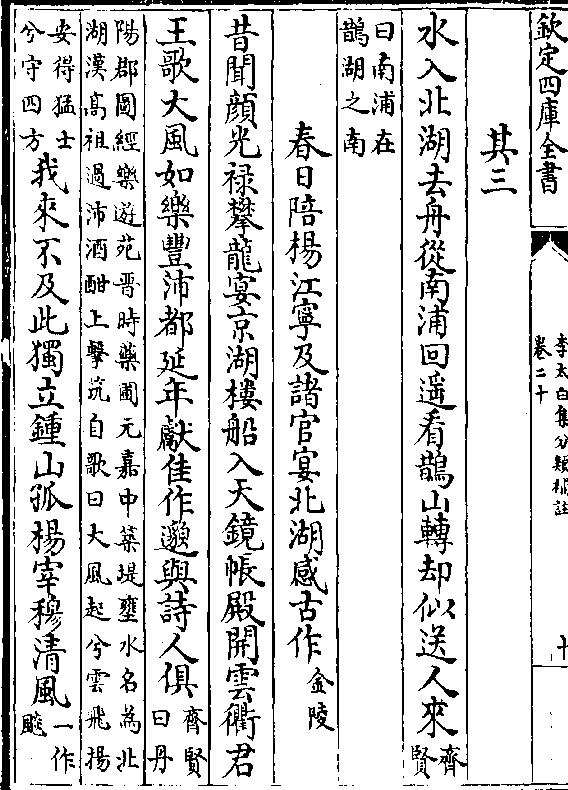 欽定四庫全書
李太白集分類補註
卷二十
十
其三
水入北湖去舟從南浦回遥看鵲山轉却似送人來齊賢
曰南浦在
鵲湖之南
春日陪楊江寧及諸官宴北湖感古作金陵
昔聞顔光禄攀龍宴京湖樓船入天鏡帳殿開雲衢君
王歌大風如樂豐沛都延年獻佳作邈與詩人俱齊賢曰丹
陽郡圖經樂遊苑晋時藥圃元嘉中築堤壅水名為北
湖漢高祖過沛酒酣上擊筑自歌曰大風起兮雲飛揚
安得猛士
兮守四方
我來不及此獨立鍾山孤楊宰穆清風一作飈